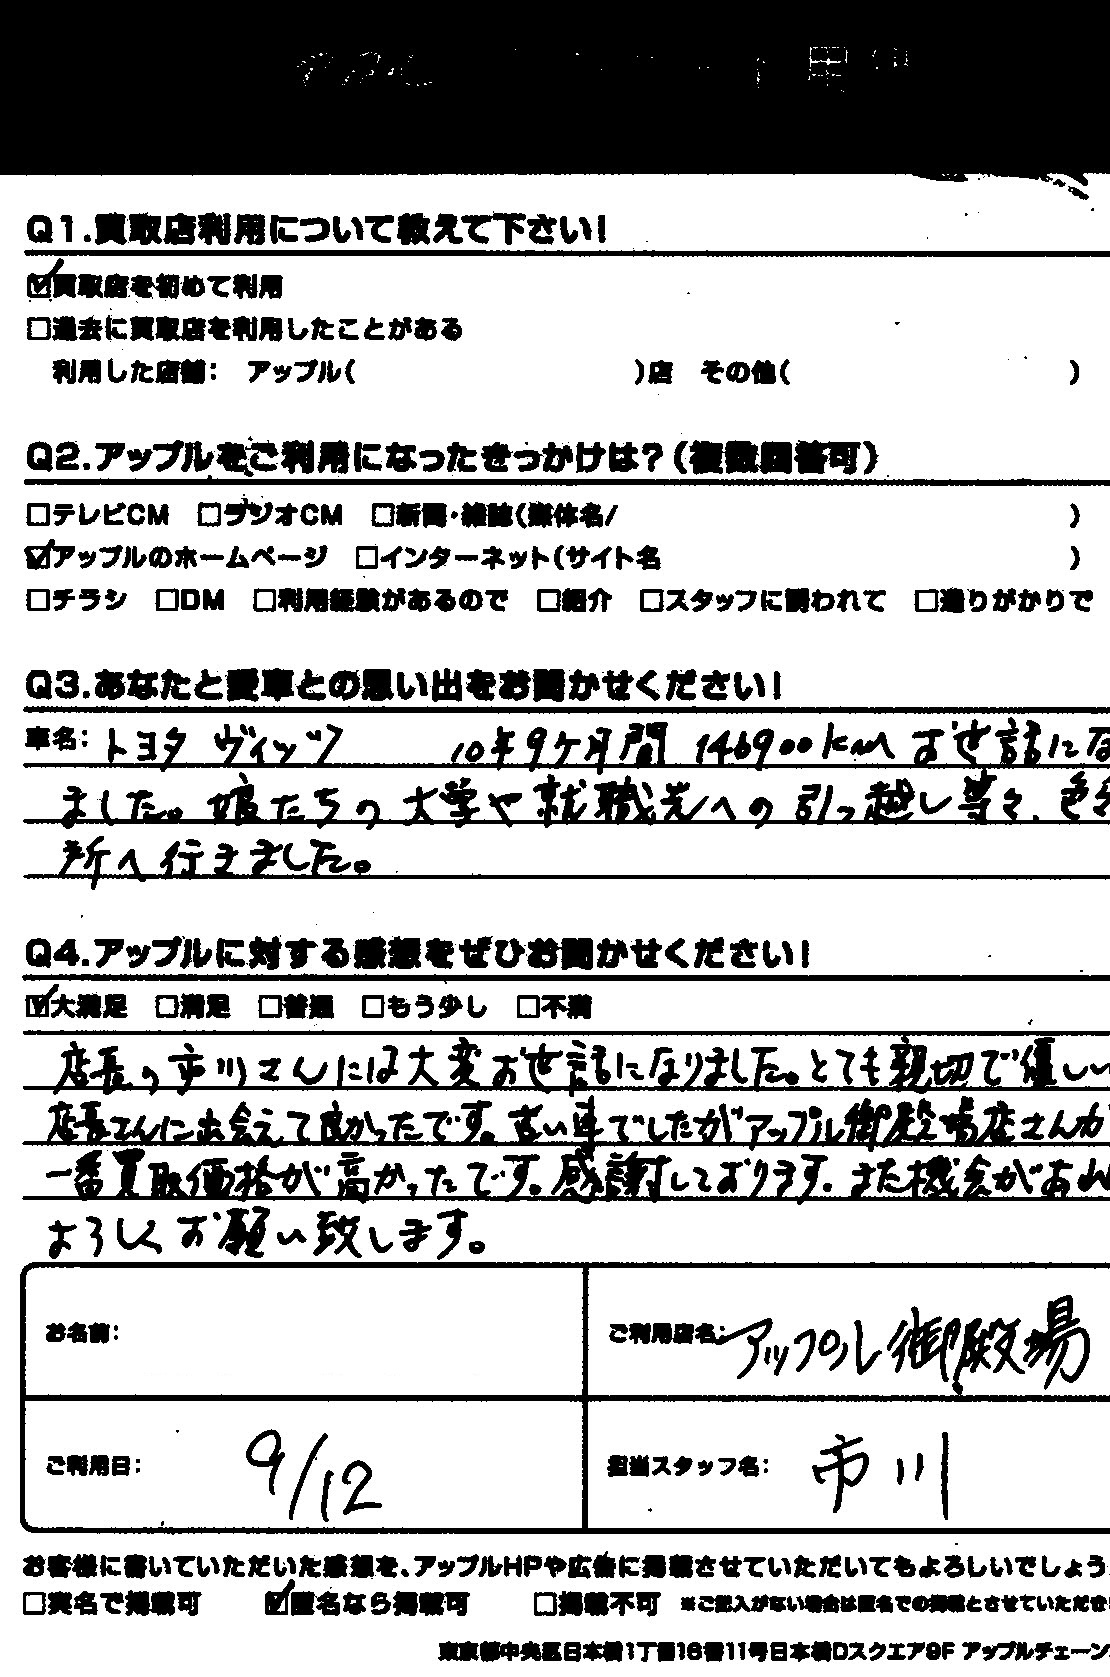 Q1.買取店利用について教えて下さい!
☑買取店を初めて利用
□過去に買取店を利用したことがある
利用した店舗: アップル( )店 その他( )
Q2.アップルをご利用になったきっかけは?(複数回答可)
□テレビCM □ラジオCM □新聞・雑誌(媒体名/ )
☑アップルのホームページ □インターネット(サイト名 )
□チラシ □DM □利用経験があるので □紹介 □スタッフに誘われて □通りがかりで
Q3.あなたと愛車との思い出をお聞かせください!
車名: トヨタ ヴィッツ 10年9ヶ月間 146900km お世話にな
ました。娘たちの大学や就職先への引っ越し等々、色々
所へ行きました。
Q4.アップルに対する感想をぜひお聞かせください!
☑大満足 □満足 □普通 □もう少し □不満
店長の市川さんには大変お世話になりました。とても親切で優しい
店長さんに出会えて良かったです。古い車でしたがアップル御殿場店さんが
一番買取価格が高かったです。感謝しております。また機会があれ
よろしくお願い致します。
お名前:
ご利用店名: アップル御殿場
ご利用日: 9/12
担当スタッフ名: 市川
お客様に書いていただいた感想を、アップルHPや広告に掲載させていただいてもよろしいでしょう
□実名で掲載可 ☑匿名なら掲載可 □掲載不可 ※ご記入がない場合は匿名での掲載とさせていただき
東京都中央区日本橋1丁目16番11号日本橋Dスクエア9F アップルチェーン